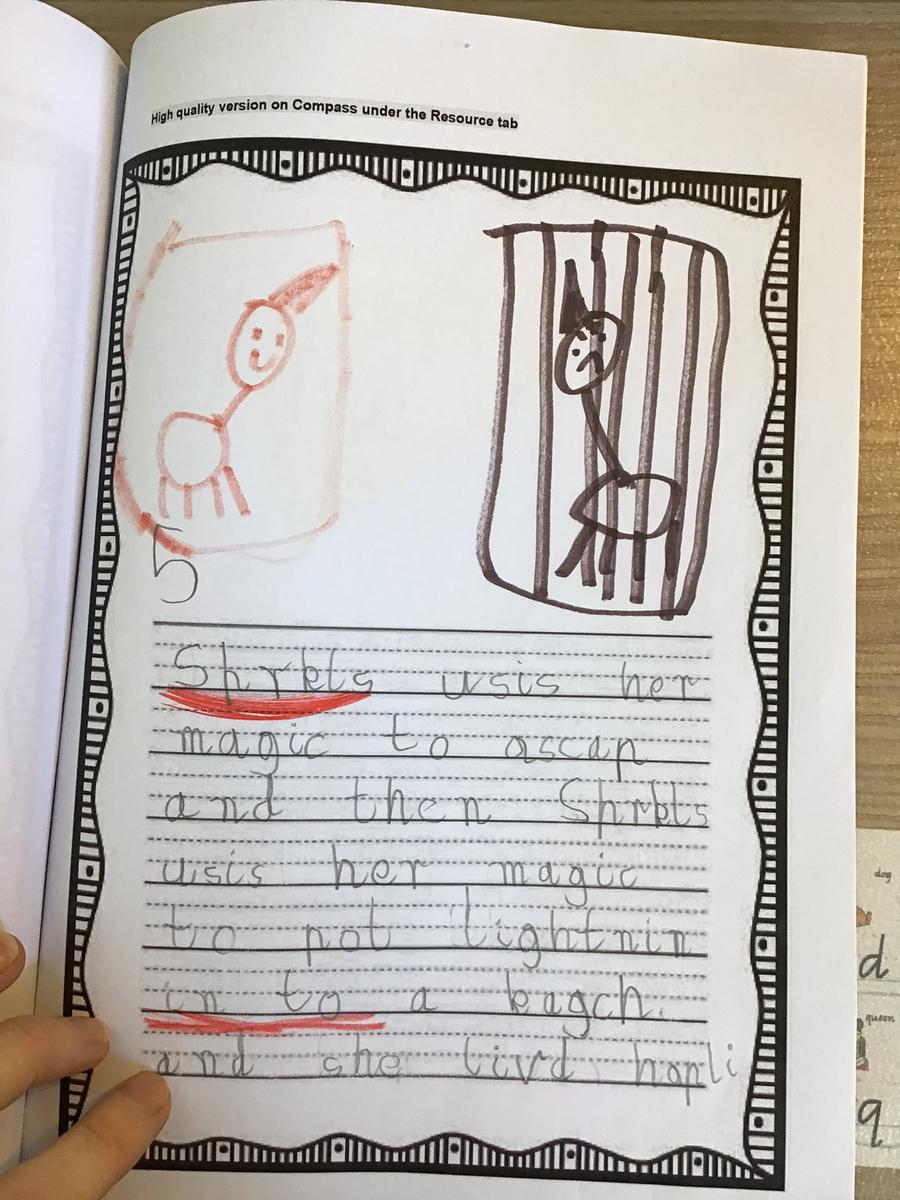 High quality version on Compass under the Resource tab
5
Shrkls usis her
magic to ascap
and then Shrkls
usis her magic
to pot lightnin
in to a kagch.
and she livd hapli
dog
d
queen
q